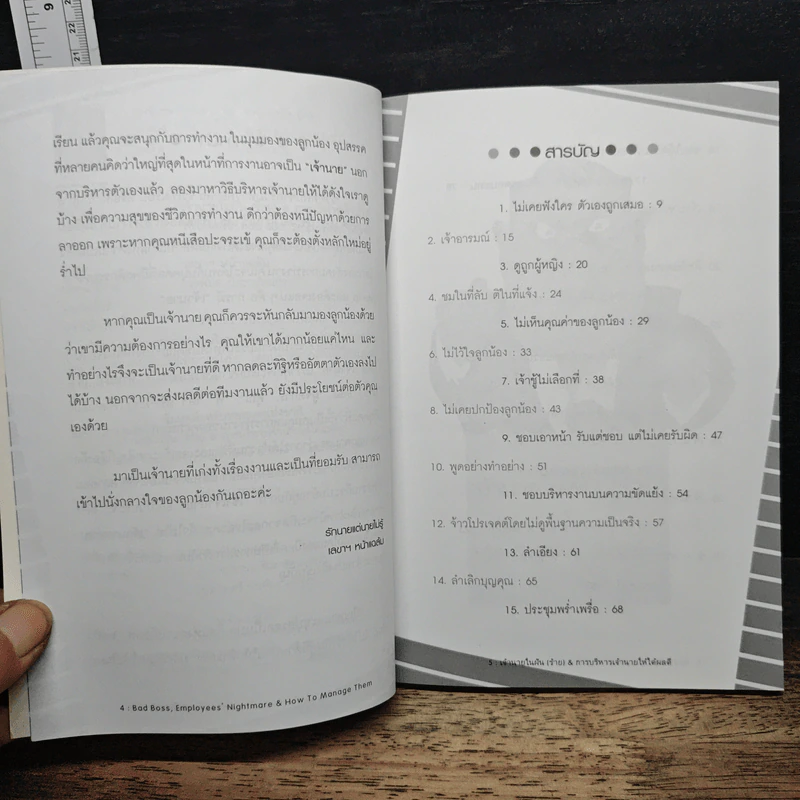 9
22
21
เรียน แล้วคุณจะสนุกกับการทำงาน ในมุมมองของลูกน้อง อุปสรรค
ที่หลายคนคิดว่าใหญ่ที่สุดในหน้าที่การงานอาจเป็น "เจ้านาย" นอก
จากบริหารตัวเองแล้ว ลองมาหาวิธีบริหารเจ้านายให้ได้ดังใจเราดู
บ้าง เพื่อความสุขของชีวิตการทำงาน ดีกว่าต้องหนีปัญหาด้วยการ
ลาออก เพราะหากคุณหนีเสือปะจระเข้ คุณก็จะต้องตั้งหลักใหม่อยู่
ร่ำไป
หากคุณเป็นเจ้านาย คุณก็ควรจะหันกลับมามองลูกน้องด้วย
ว่าเขามีความต้องการอย่างไร คุณให้เขาได้มากน้อยแค่ไหน และ
ทำอย่างไรจึงจะเป็นเจ้านายที่ดี หากลดละทิฐิหรืออัตตาตัวเองลงไป
ได้บ้าง นอกจากจะส่งผลดีต่อทีมงานแล้ว ยังมีประโยชน์ต่อตัวคุณ
เองด้วย
มาเป็นเจ้านายที่เก่งทั้งเรื่องงานและเป็นที่ยอมรับ สามารถ
เข้าไปนั่งกลางใจของลูกน้องกันเถอะค่ะ
รักนายแต่นายไม่รู้
เลขาฯ หน้าแฉล้ม
4 : Bad Boss, Employees' Nightmare & How To Manage Them
สารบัญ
1. ไม่เคยฟังใคร ตัวเองถูกเสมอ : 9
2. เจ้าอารมณ์ : 15
3. ดูถูกผู้หญิง : 20
4. ชมในที่ลับ ติในที่แจ้ง : 24
5. ไม่เห็นคุณค่าของลูกน้อง : 29
6. ไม่ไว้ใจลูกน้อง : 33
7. เจ้าชู้ไม่เลือกที่ : 38
8. ไม่เคยปกป้องลูกน้อง : 43
9. ชอบเอาหน้า รับแต่ชอบ แต่ไม่เคยรับผิด : 47
10. พูดอย่างทำอย่าง : 51
11. ชอบบริหารงานบนความขัดแย้ง : 54
12. จ้าวโปรเจคต์โดยไม่ดูพื้นฐานความเป็นจริง : 57
13. ลำเอียง : 61
14. ลำเลิกบุญคุณ : 65
15. ประชุมพร่ำเพรื่อ : 68
5 : เจ้านายในฝัน (ร้าย) & การบริหารเจ้านายให้ได้ผลดี